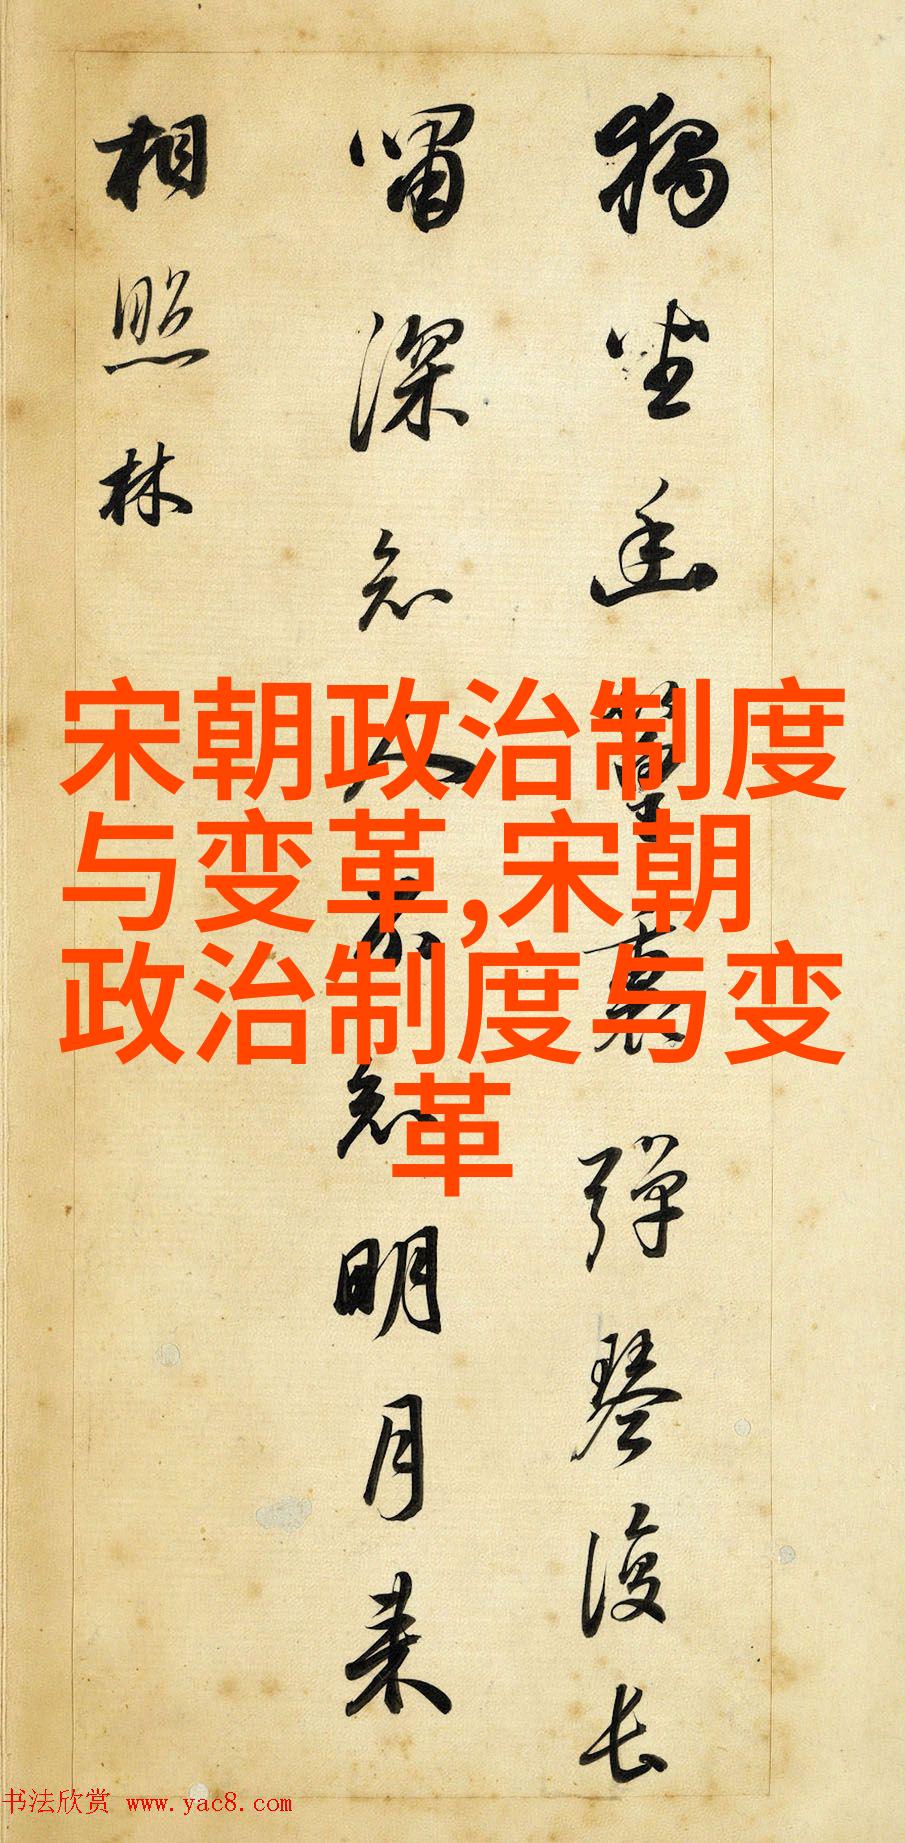 獨坐幽篁裏彈琴復長
嘯深知人不知明月来
相照林
宋朝政治制度
与变革,宋朝
政治制度与变
革
书法欣赏 www.yac8.com